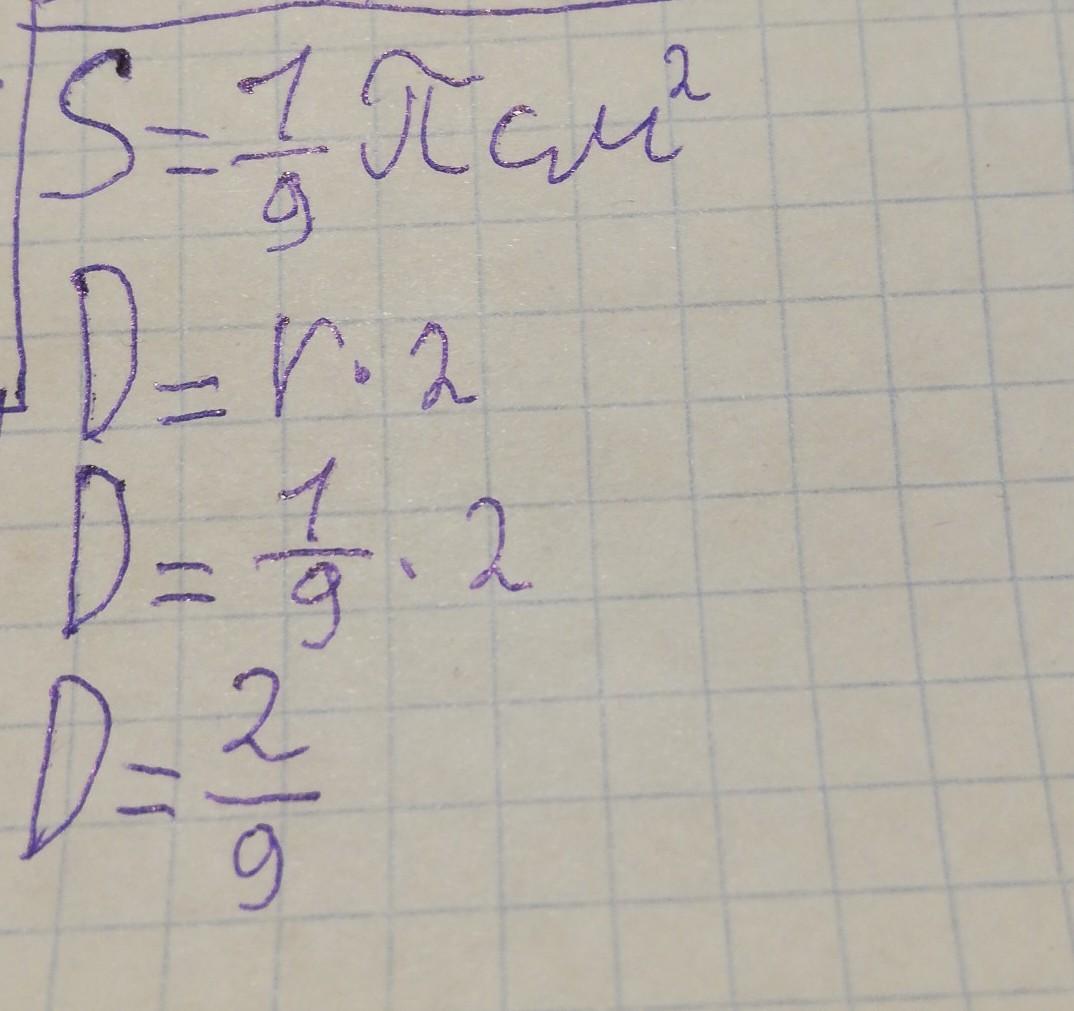 S = 1/9 π см²
D = r · 2
D = 1/9 · 2
D = 2/9